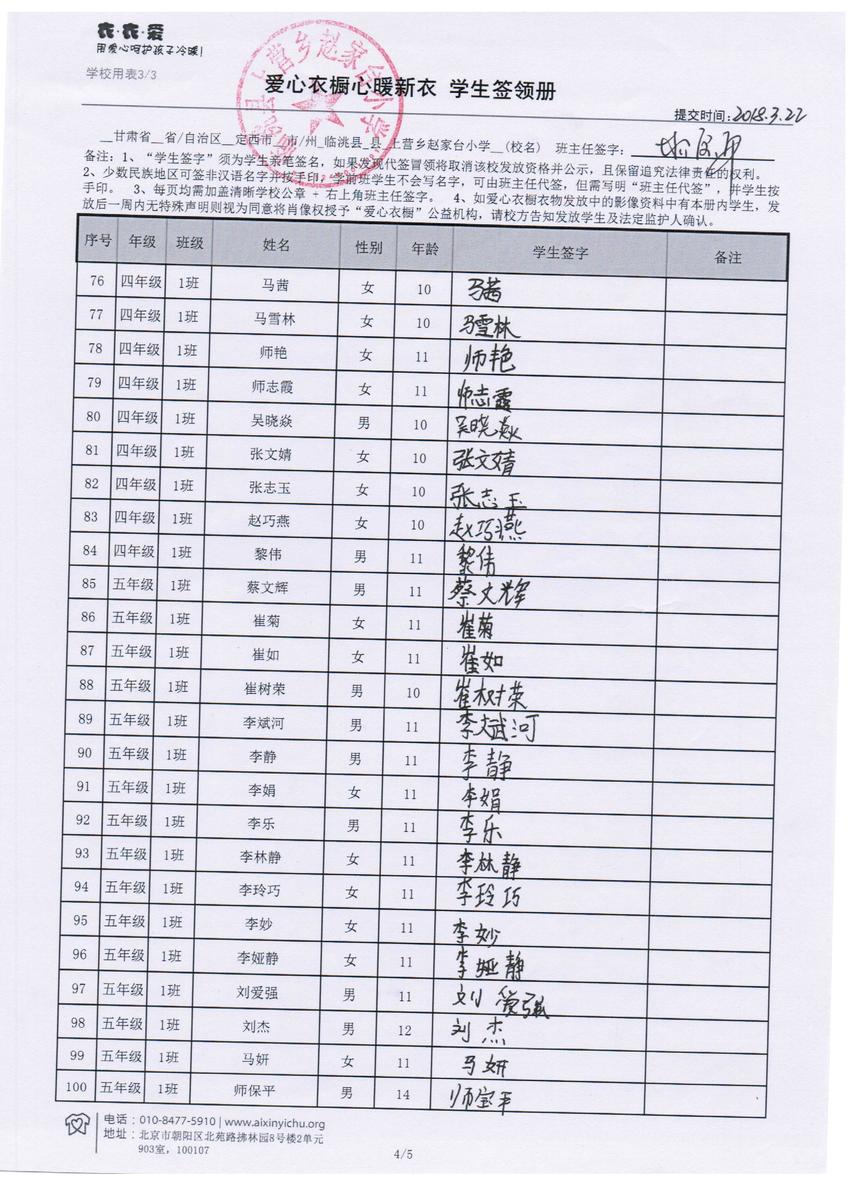 衣·衣·爱
用爱心呵护孩子冷暖!
学校用表3/3
上营乡赵家台小学
爱心衣橱心暖新衣 学生签领册
提交时间:2018.3.22
__甘肃省__省/自治区__定西市__市/州_临洮县_县_上营乡赵家台小学__(校名) 班主任签字:
备注:1、“学生签字”须为学生亲笔签名,如果发现代签冒领将取消该校发放资格并公示,且保留追究法律责任的权利。
2、少数民族地区可签非汉语名字并按手印,学前班学生不会写名字,可由班主任代签,但需写明“班主任代签”,并学生按
手印。 3、每页均需加盖清晰学校公章 + 右上角班主任签字。 4、如爱心衣橱衣物发放中的影像资料中有本册内学生,发
放后一周内无特殊声明则视为同意将肖像权授予“爱心衣橱”公益机构,请校方告知发放学生及法定监护人确认。
序号 年级 班级 姓名 性别 年龄 学生签字 备注
76 四年级 1班 马茜 女 10 马茜
77 四年级 1班 马雪林 女 10 马雪林
78 四年级 1班 师艳 女 11 师艳
79 四年级 1班 师志霞 女 11 师志霞
80 四年级 1班 吴晓焱 男 10 吴晓焱
81 四年级 1班 张文婧 女 10 张文婧
82 四年级 1班 张志玉 女 10 张志玉
83 四年级 1班 赵巧燕 女 10 赵巧燕
84 四年级 1班 黎伟 男 11 黎伟
85 五年级 1班 蔡文辉 男 11 蔡文辉
86 五年级 1班 崔菊 女 11 崔菊
87 五年级 1班 崔如 女 11 崔如
88 五年级 1班 崔树荣 男 10 崔树荣
89 五年级 1班 李斌河 男 11 李斌河
90 五年级 1班 李静 男 11 李静
91 五年级 1班 李娟 女 11 李娟
92 五年级 1班 李乐 男 11 李乐
93 五年级 1班 李林静 女 11 李林静
94 五年级 1班 李玲巧 女 11 李玲巧
95 五年级 1班 李妙 女 11 李妙
96 五年级 1班 李娅静 女 11 李娅静
97 五年级 1班 刘爱强 男 11 刘爱强
98 五年级 1班 刘杰 男 12 刘杰
99 五年级 1班 马妍 女 11 马妍
100 五年级 1班 师保平 男 14 师宝平
电话:010-8477-5910 | www.aixinyichu.org
地址:北京市朝阳区北苑路拂林园8号楼2单元
903室,100107
4/5